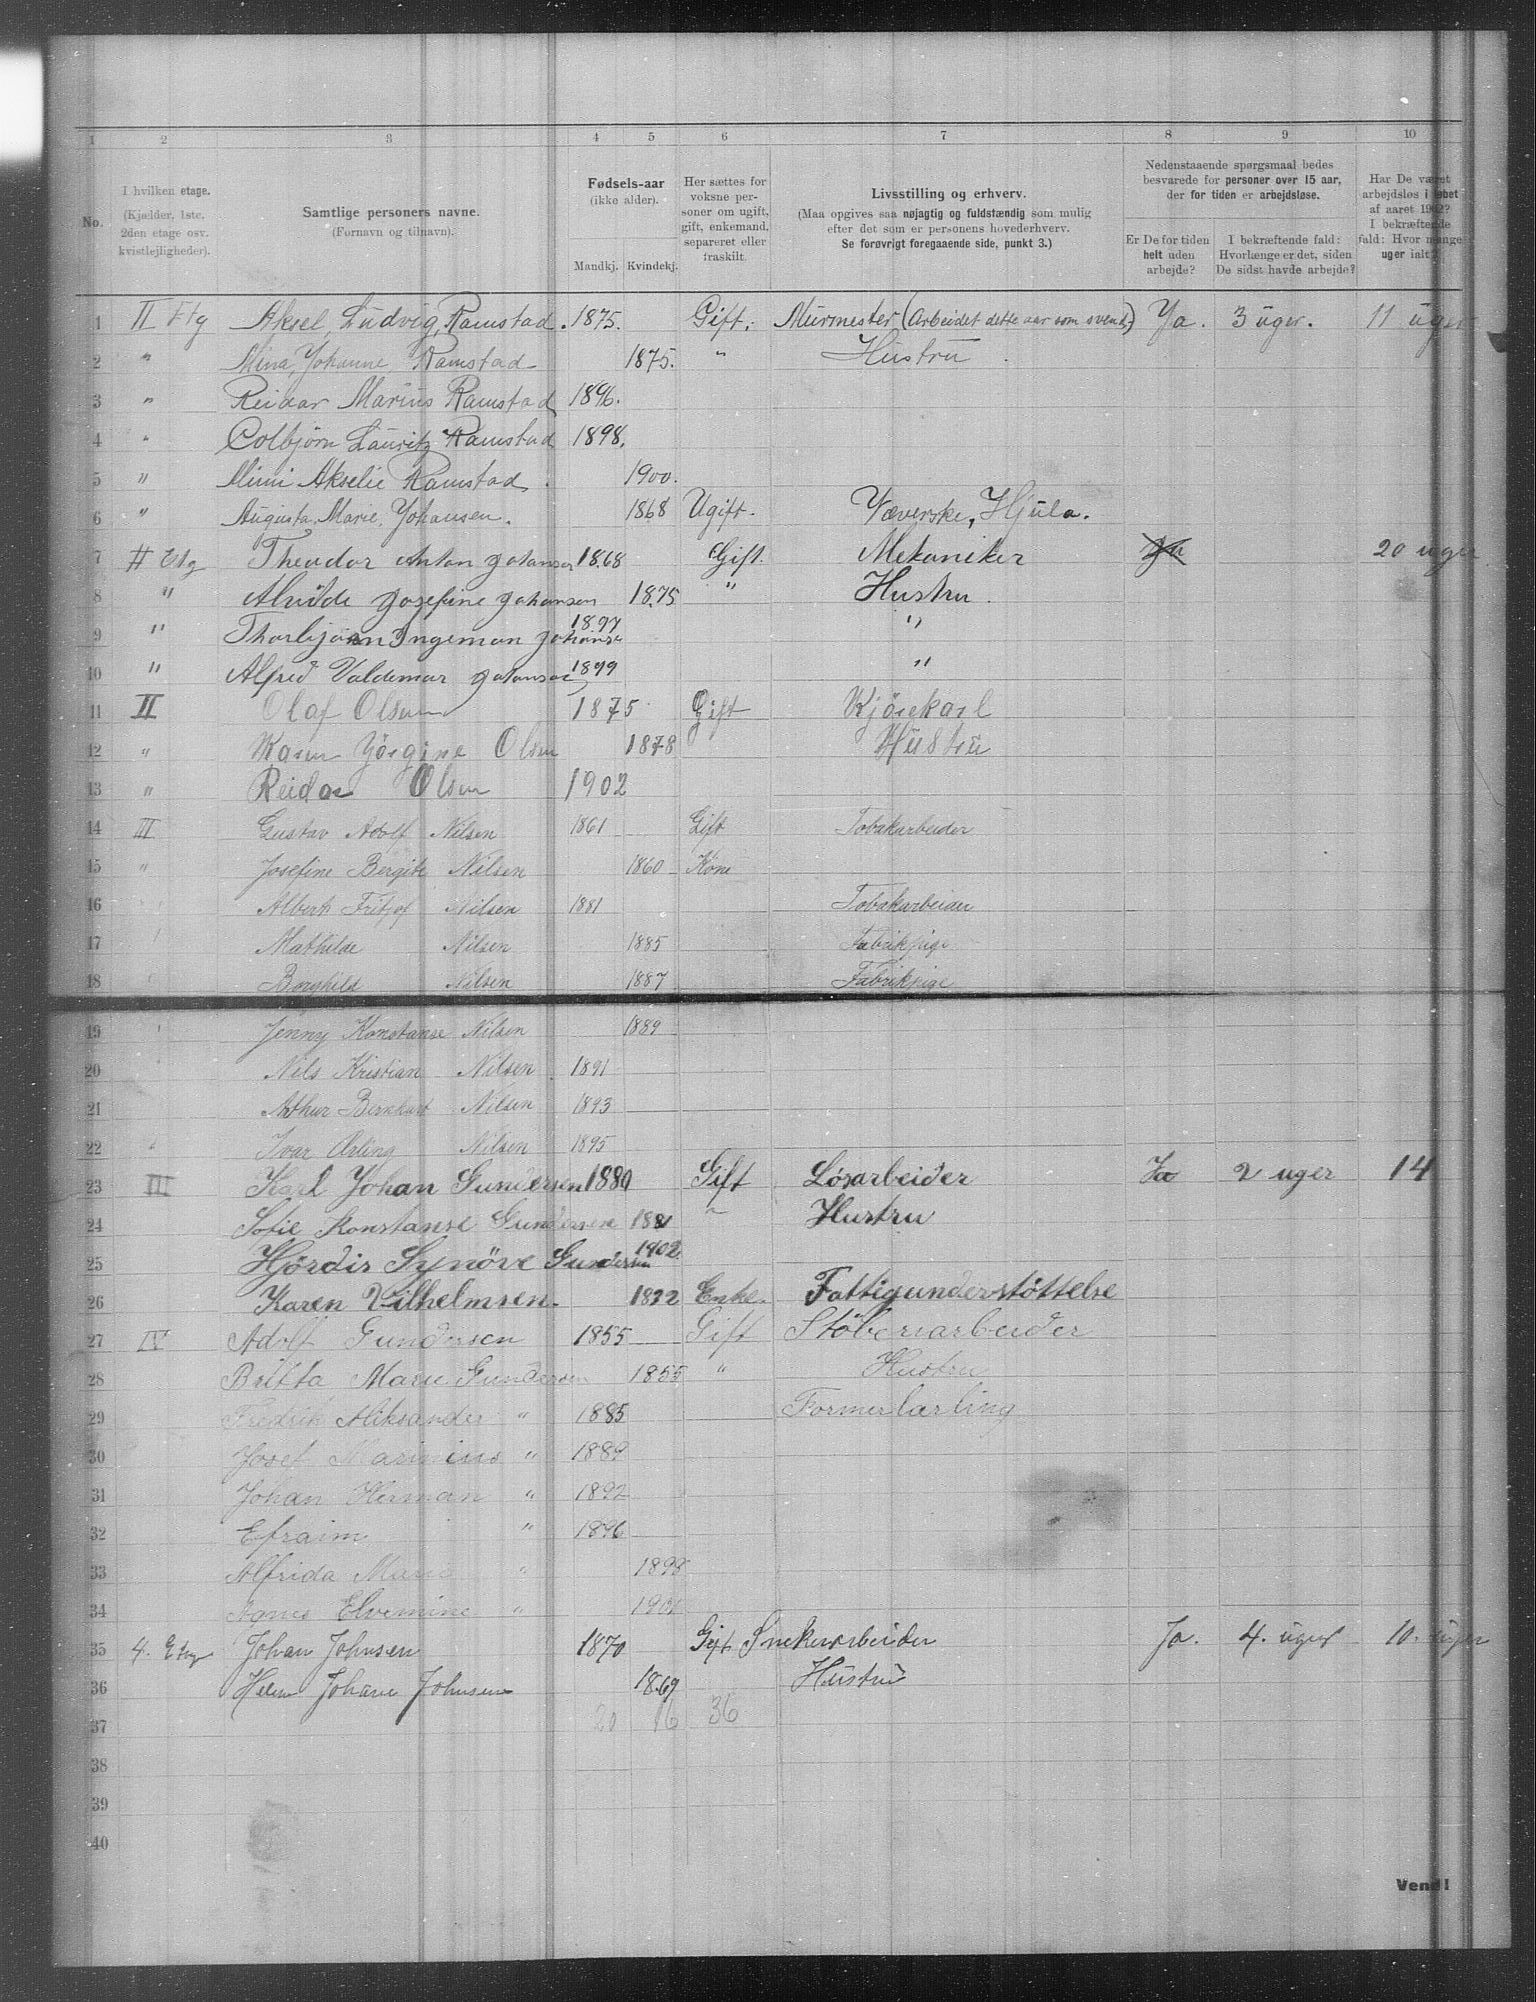 1 2 3 4 5 6 7 8 9 10
No.
I hvilken etage.
(Kjælder, 1ste. 2den etage osv. kvistlejligheder).
Samtlige personers navne.
(Fornavn og tilnavn).
Fødsels-aar
(ikke alder).
Mandkj. Kvindekj.
Her sættes for voksne personer om ugift, gift, enkemand, separeret eller fraskilt.
Livsstilling og erhverv.
(Maa opgives saa nøjagtig og fuldstændig som mulig
efter det som er personens hovederhverv.
Se forøvrigt foregaaende side, punkt 3.)
Nedenstaaende spørgsmaal bedes
besvarede for personer over 15 aar,
der for tiden er arbejdsløse.
Er De for tiden helt uden arbejde?
I bekræftende fald: Hvorlænge er det, siden De sidst havde arbejde?
Har De været arbejdsløs i løbet af aaret 1902? I bekræftende fald: Hvor mange uger ialt?
1 II Etg Aksel Ludvig Ramstad. 1875. Gift. Murmester (Arbeidet dette aar som svend) Ja. 3 uger. 11 uger
2 " Mina Johanne Ramstad 1875. " Hustru
3 " Reidar Marius Ramstad 1896.
4 " Colbjørn Lauritz Ramstad 1898.
5 " Mimi Akselie Ramstad 1900.
6 " Augusta Marie Johansen. 1868 Ugift. Væverske, Hjula.
7 II Etg Theodor Anton Johansen 1868 Gift. Mekaniker Ja 20 uger
8 " Alvilde Josefine Johansen 1875 " Hustru.
9 " Thorbjørn Ingeman Johanse 1897 "
10 " Alfred Valdemar Johansen 1899 "
11 II Olaf Olsen 1875 Gift Kjørekarl
12 " Karen Jørgine Olsen 1878 Hustru
13 " Reidar Olsen 1902
14 III Gustav Adolf Nilsen 1861 Gift Tobakarbeider
15 " Josefine Bergite Nilsen 1860 Kone
16 Albert Fritjof Nilsen 1881 Tobakarbeider
17 Mathilde Nilsen 1885 Fabrikpige
18 Borghild Nilsen 1887 Fabrikpige
19 Jenny Konstanse Nilsen 1889
20 Nils Kristian Nilsen 1891
21 Arthur Bernhart Nilsen 1893
22 Ivar Arling Nilsen 1895
23 III Karl Johan Gundersen 1880 Gift Løsarbeider Ja 2 uger 14
24 Sofie Konstanse Gundersen 1881 " Hustru
25 Hjørdis Synöve Gundersen 1902.
26 Karen Vilhelmsen. 1832 Enke. Fattigunderstøttelse
27 IV Adolf Gundersen 1855 Gift Støberiarbeider
28 Britta Marie Gundersen 1855 " Hustru
29 Fredrik Aleksander " 1885 Formerlærling
30 Josef Marinius " 1889
31 Johan Herman " 1892
32 Efraim " 1896
33 Alfrida Marie " 1898
34 Agnes Elvemine " 1901
35 4. Etg Johan Johnsen 1870 Gift Snekerarbeider Ja. 4. uger 10. uger
36 Johane Johnsen 1869 Hustru
37 20 16 36
38
39
40
Vend!